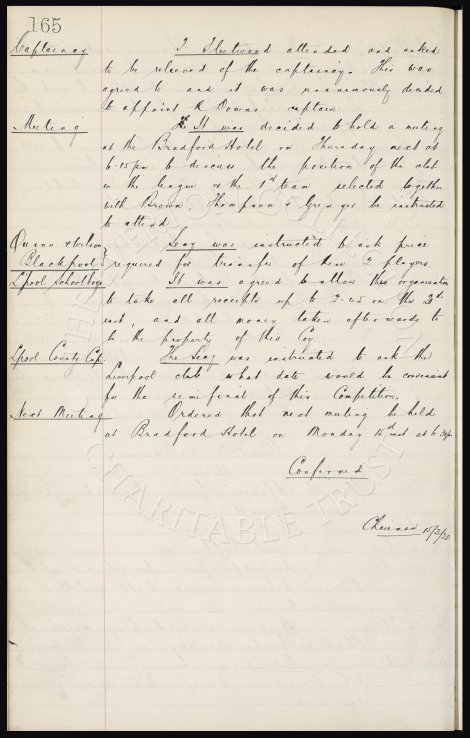 165
Captaincy T Fleetwood attended and asked
to be relieved of the captaincy. This was
agreed to and it was unanimously decided
to appoint R Downs captain.
Meeting It was decided to hold a meeting
at the Bradford Hotel on Thursday next at
6-15 pm to discuss the position of the club
in the league & the 1st team selected together
with Brown, Thompson & Grenyer be instructed
to attend
Quinn & Wilson Secy was instructed to ask price
Blackpool required for transfer of these 2 players.
Lpool Schoolboys It was agreed to allow this organisation
to take all receipts up to 2-45 on the
inst, and all money taken afterwards to
be the property of this Coy.
Lpool County Cup. The Secy was instructed to ask the
Liverpool club what date would be convenient
for the semi final of this Competition.
Next Meeting Ordered that next meeting be held
at Bradford Hotel on Monday 15th inst at 6-30pm.
Confirmed
Chairman 15/3/20
HERITAGE COLLECTION
CHARITABLE TRUST